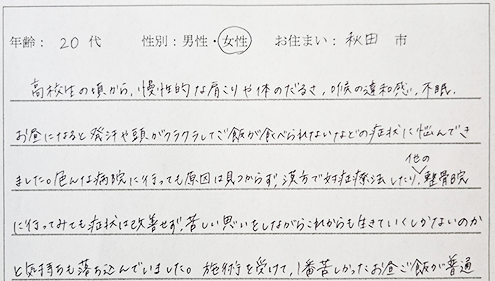 年齢： 20 代　性別：男性・女性　お住まい： 秋田 市
高校生の頃から、慢性的な肩こりや体のだるさ、喉の違和感、不眠、
お昼になると発汗や頭がクラクラしてご飯が食べられないなどの症状に悩んでき
ました。色んな病院に行っても原因は見つからず、漢方で対症療法したり、他の整骨院
に行ってみても症状は改善せず、苦しい思いをしながらこれからも生きていくしかないのか
と気持ちも落ち込んでいました。施術を受けて、1番苦しかったお昼ご飯が普通